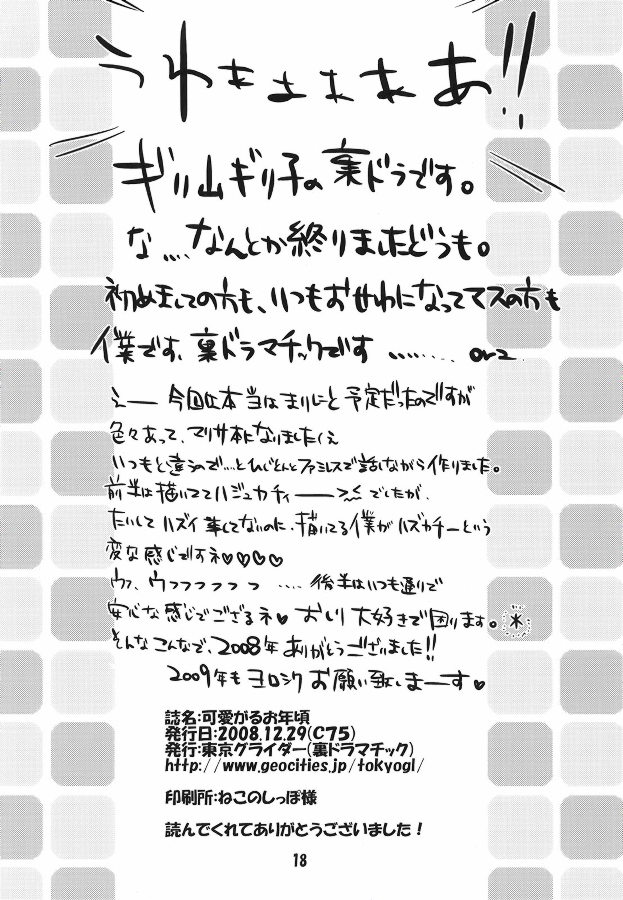 うわぁぁぁぁあ!!
ギリ山ギリ子の裏ドラです。
な....なんとか終りましたどうも。
初めましての方も、いつもおせわになってマスの方も
僕です、裏ドラマチックです ......... orz
えー 今回は本当はまりにと予定だったのですが
色々あって、マリサ本になりました(え
いつもと違うので...とひじとんとファミレスで話しながら作りました。
前半は描いててハジュカチィーーでしたが、
たいしてハズイ事してないのに、描いてる僕がハズカチーという
変な感じですネ♥♥♥♥
ウァ、ウフフフフフフ .... 後半はいつも通りで
安心な感じでござるネ♥ おしり大好きで困ります。
そんなこんなで、2008年ありがとうございました!!
2009年もヨロシクお願い致しまーす♥
誌名:可愛がるお年頃
発行日:2008.12.29(C75)
発行:東京グライダー(裏ドラマチック)
http://www.geocities.jp/tokyogl/
印刷所:ねこのしっぽ様
読んでくれてありがとうございました!
18